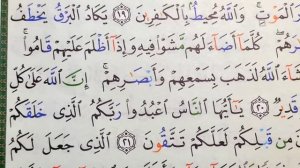 ٱلْمَوْتِ ۚ وَٱللَّهُ مُحِيطٌۢ بِٱلْكَٰفِرِينَ ١٩ يَكَادُ ٱلْبَرْقُ يَخْطَفُ
رَهُمْ ۖ كُلَّمَآ أَضَآءَ لَهُم مَّشَوْا۟ فِيهِ وَإِذَآ أَظْلَمَ عَلَيْهِمْ قَامُوا۟ ۚ
آءَ ٱللَّهُ لَذَهَبَ بِسَمْعِهِمْ وَأَبْصَٰرِهِمْ ۚ إِنَّ ٱللَّهَ عَلَىٰ كُلِّ
قَدِيرٌ ٢٠ يَٰٓأَيُّهَا ٱلنَّاسُ ٱعْبُدُوا۟ رَبَّكُمُ ٱلَّذِى خَلَقَكُمْ
مِن قَبْلِكُمْ لَعَلَّكُمْ تَتَّقُونَ ٢١ ٱلَّذِى جَعَلَ لَكُمُ